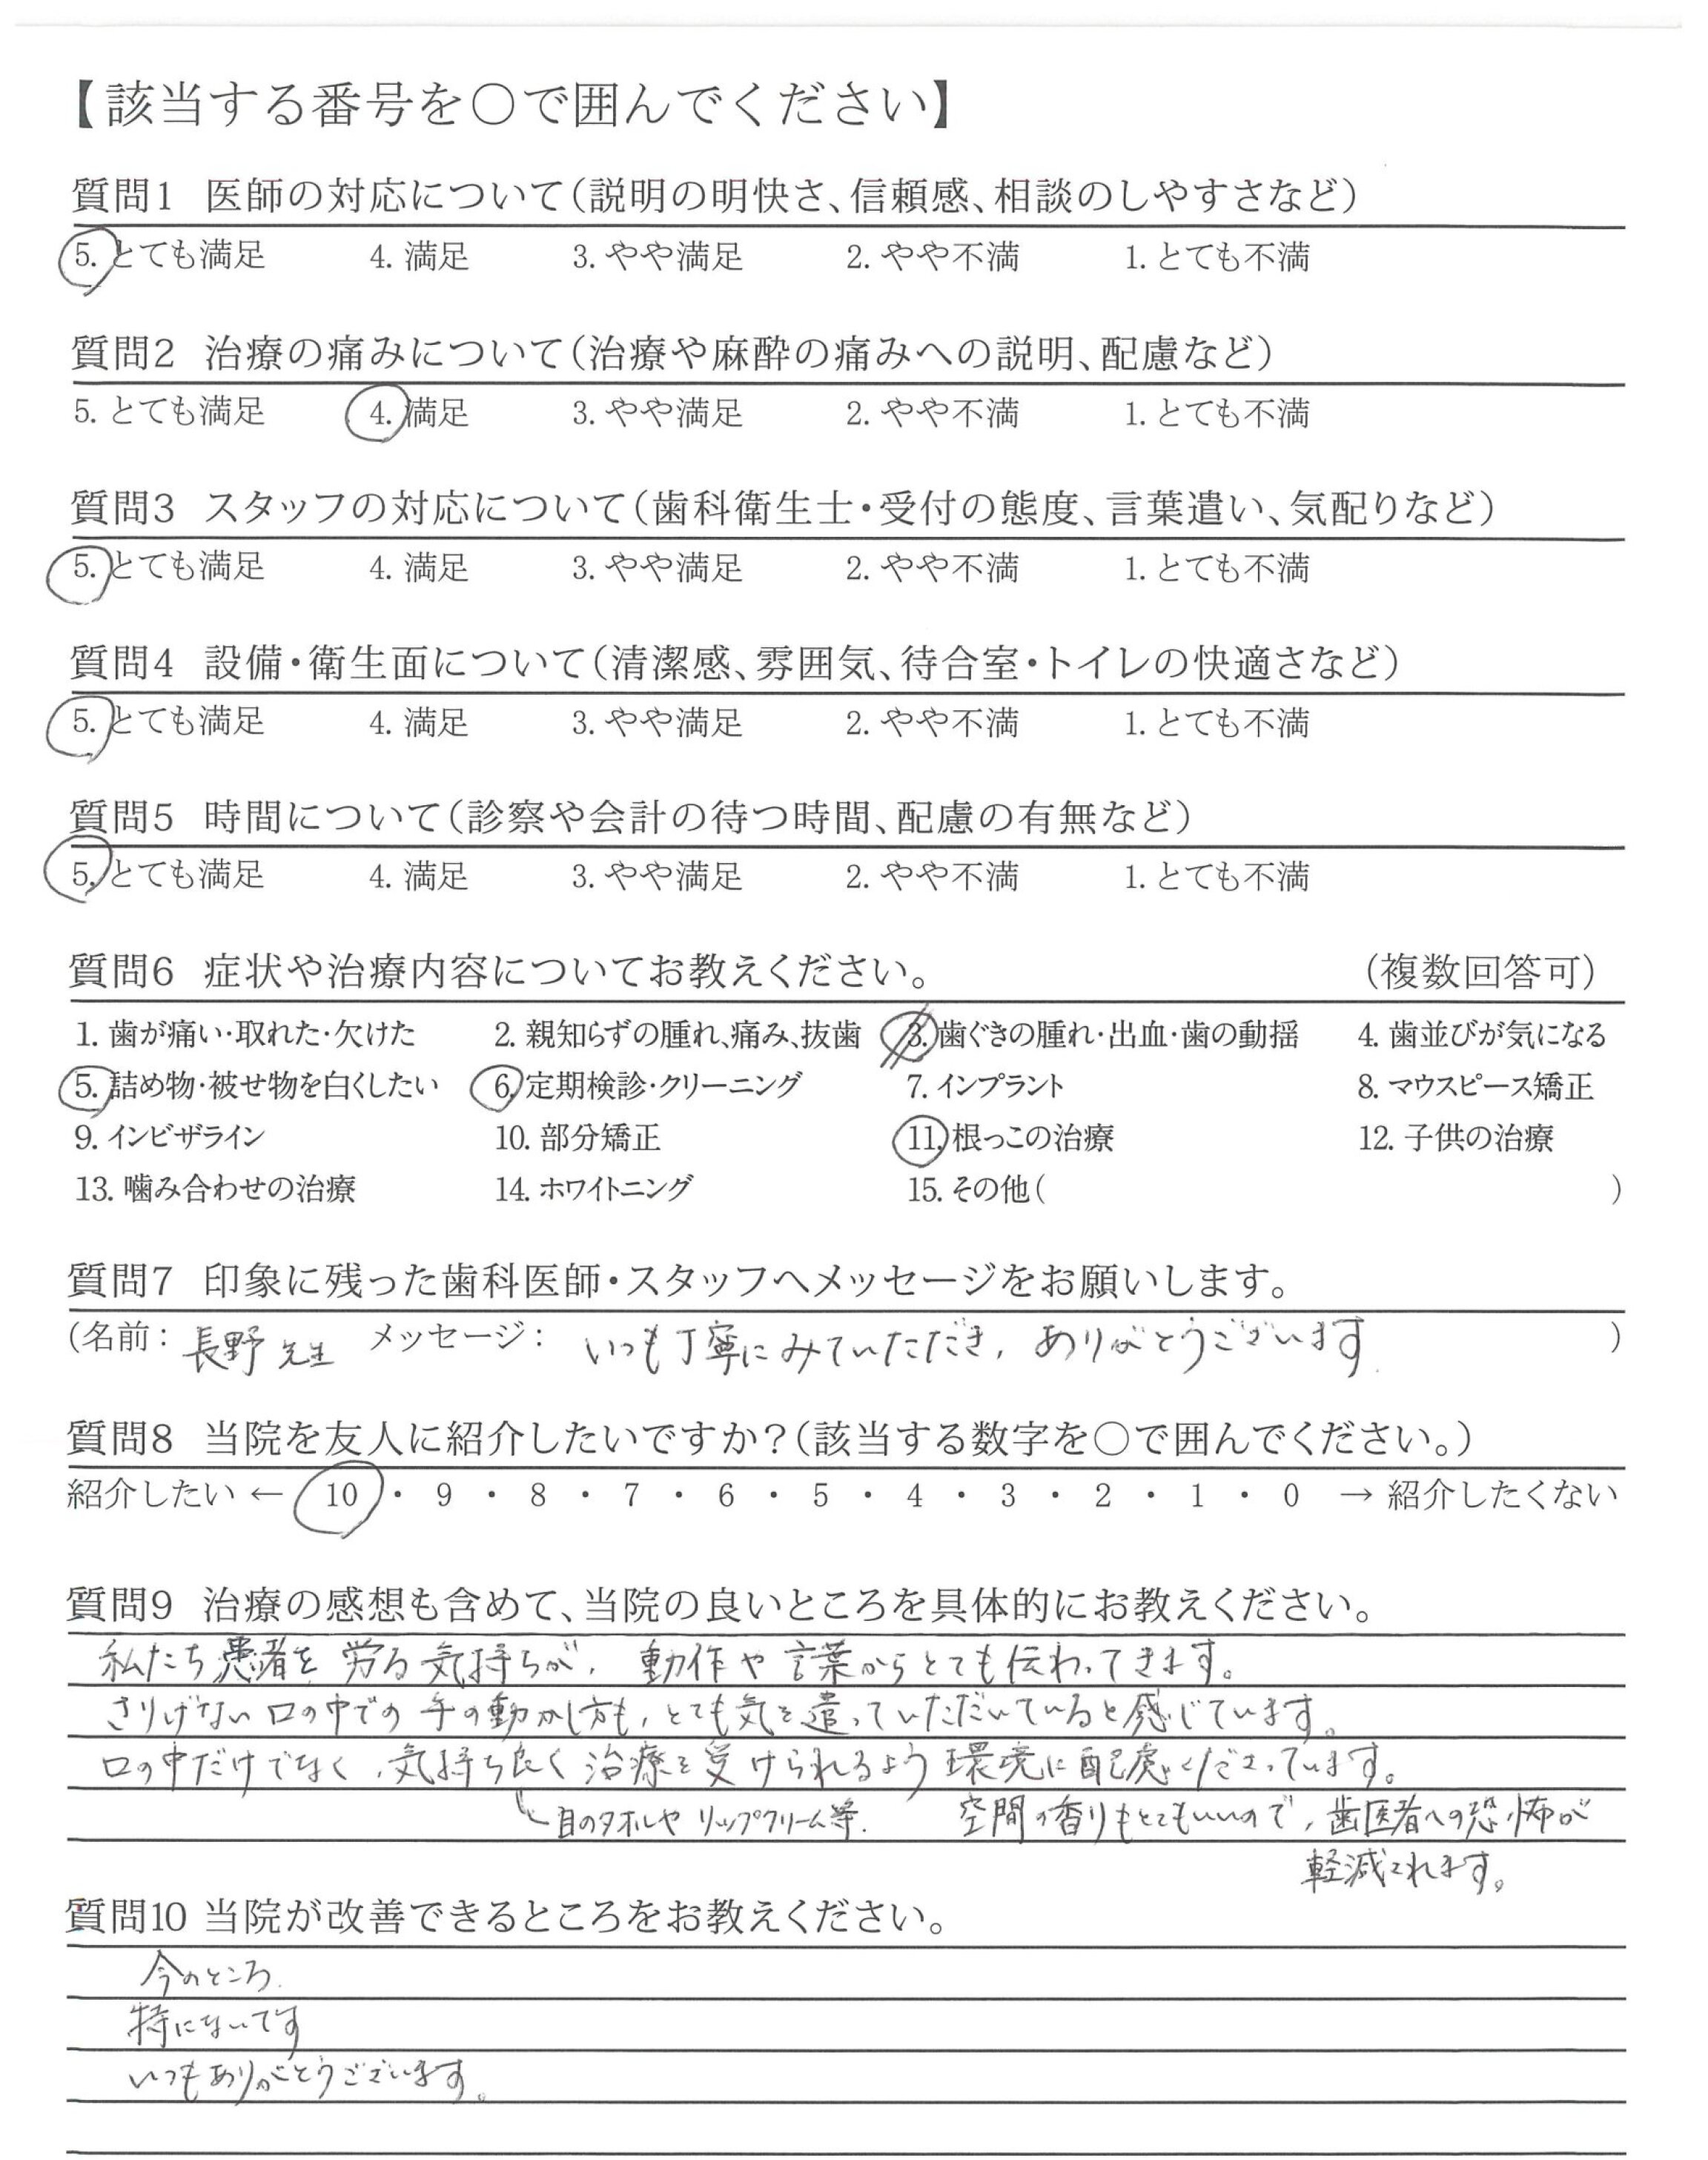 【該当する番号を○で囲んでください】
質問1 医師の対応について（説明の明快さ、信頼感、相談のしやすさなど）
5. とても満足 4. 満足 3. やや満足 2. やや不満 1. とても不満
質問2 治療の痛みについて（治療や麻酔の痛みへの説明、配慮など）
5. とても満足 4. 満足 3. やや満足 2. やや不満 1. とても不満
質問3 スタッフの対応について（歯科衛生士・受付の態度、言葉遣い、気配りなど）
5. とても満足 4. 満足 3. やや満足 2. やや不満 1. とても不満
質問4 設備・衛生面について（清潔感、雰囲気、待合室・トイレの快適さなど）
5. とても満足 4. 満足 3. やや満足 2. やや不満 1. とても不満
質問5 時間について（診察や会計の待つ時間、配慮の有無など）
5. とても満足 4. 満足 3. やや満足 2. やや不満 1. とても不満
質問6 症状や治療内容についてお教えください。 （複数回答可）
1. 歯が痛い・取れた・欠けた 2. 親知らずの腫れ、痛み、抜歯 3. 歯ぐきの腫れ・出血・歯の動揺 4. 歯並びが気になる
5. 詰め物・被せ物を白くしたい 6. 定期検診・クリーニング 7. インプラント 8. マウスピース矯正
9. インビザライン 10. 部分矯正 11. 根っこの治療 12. 子供の治療
13. 噛み合わせの治療 14. ホワイトニング 15. その他（ ）
質問7 印象に残った歯科医師・スタッフへメッセージをお願いします。
（名前： 長野先生 メッセージ： いつも丁寧にみていただき、ありがとうございます ）
質問8 当院を友人に紹介したいですか？（該当する数字を○で囲んでください。）
紹介したい ← 10 ・ 9 ・ 8 ・ 7 ・ 6 ・ 5 ・ 4 ・ 3 ・ 2 ・ 1 ・ 0 → 紹介したくない
質問9 治療の感想も含めて、当院の良いところを具体的にお教えください。
私たち患者を労る気持ちが、動作や言葉からとても伝わってきます。
さりげない口の中での手の動かし方も、とても気を遣っていただいていると感じています。
口の中だけでなく、気持ち良く治療を受けられるよう環境に配慮くださっています。
目のタオルやリップクリーム等. 空間の香りもとてもいいので、歯医者への恐怖が
軽減されます。
質問10 当院が改善できるところをお教えください。
今のところ
特にないです
いつもありがとうございます。